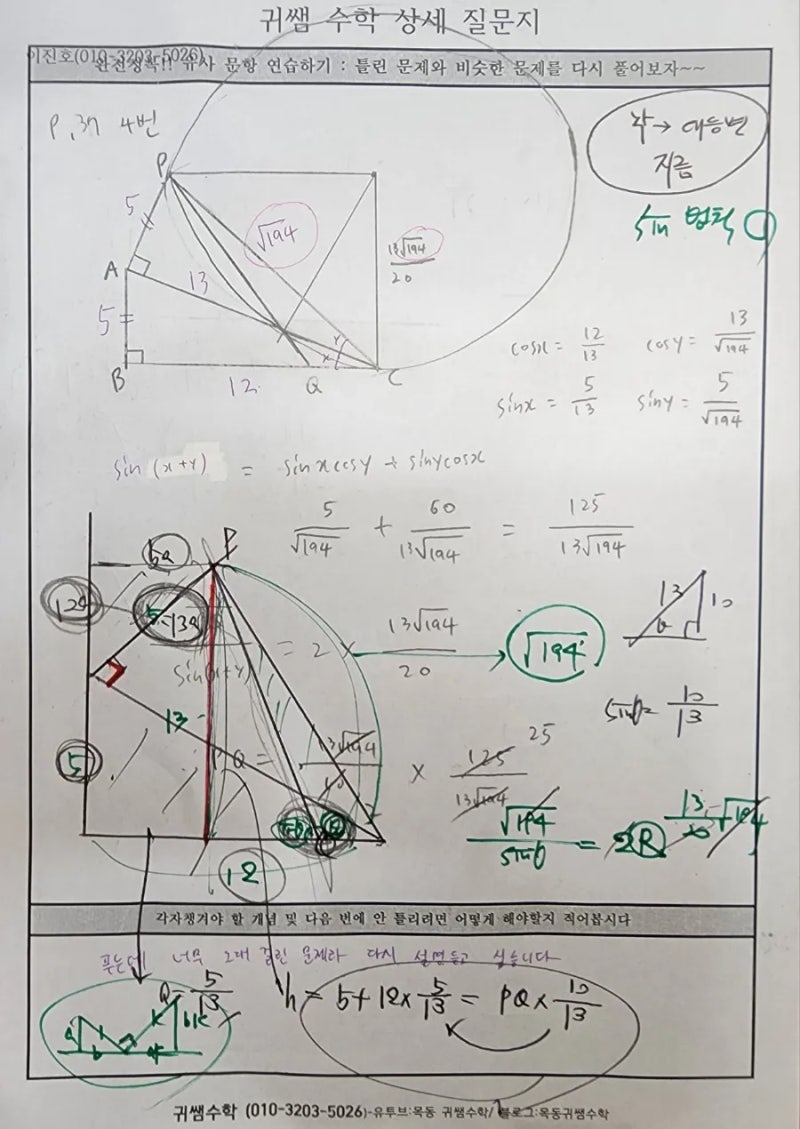 귀쌤 수학 상세 질문지
이진호(010-3203-5026)
완전정복!! 유사 문항 연습하기 : 틀린 문제와 비슷한 문제를 다시 풀어보자~~
P.37 4번
각 → 대응변
지름
sin 법칙
P
5
√194
13√194/20
A
13
5
y
x
B
12
Q
C
cosx = 12/13
cosy = 13/√194
sinx = 5/13
siny = 5/√194
sin(x+y) = sinxcosy + sinycosx
5/√194 + 60/13√194 = 125/13√194
5a
P
12a
13a
sin(x+y) = 2 × 13√194/20 → √194
13
10
θ
sinθ = 10/13
5
13
PQ = 13√194/10 × 125/13√194
25
√194/sinθ = 2R
13/10 √194
12
각자챙겨야 할 개념 및 다음 번에 안 틀리려면 어떻게 해야할지 적어봅시다
푸는데 너무 오래 걸린 문제라 다시 설명듣고 싶습니다
5/13
h = 5+12×5/13 = PQ×10/13
a
b
k
bk
ak
귀쌤수학 (010-3203-5026)-유투브:목동 귀쌤수학/ 블로그:목동귀쌤수학